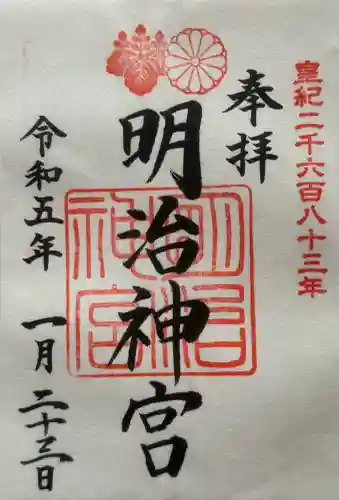 皇紀二千六百八十三年
奉拝
明治神宮
明治神宮
令和五年 一月 二十三日